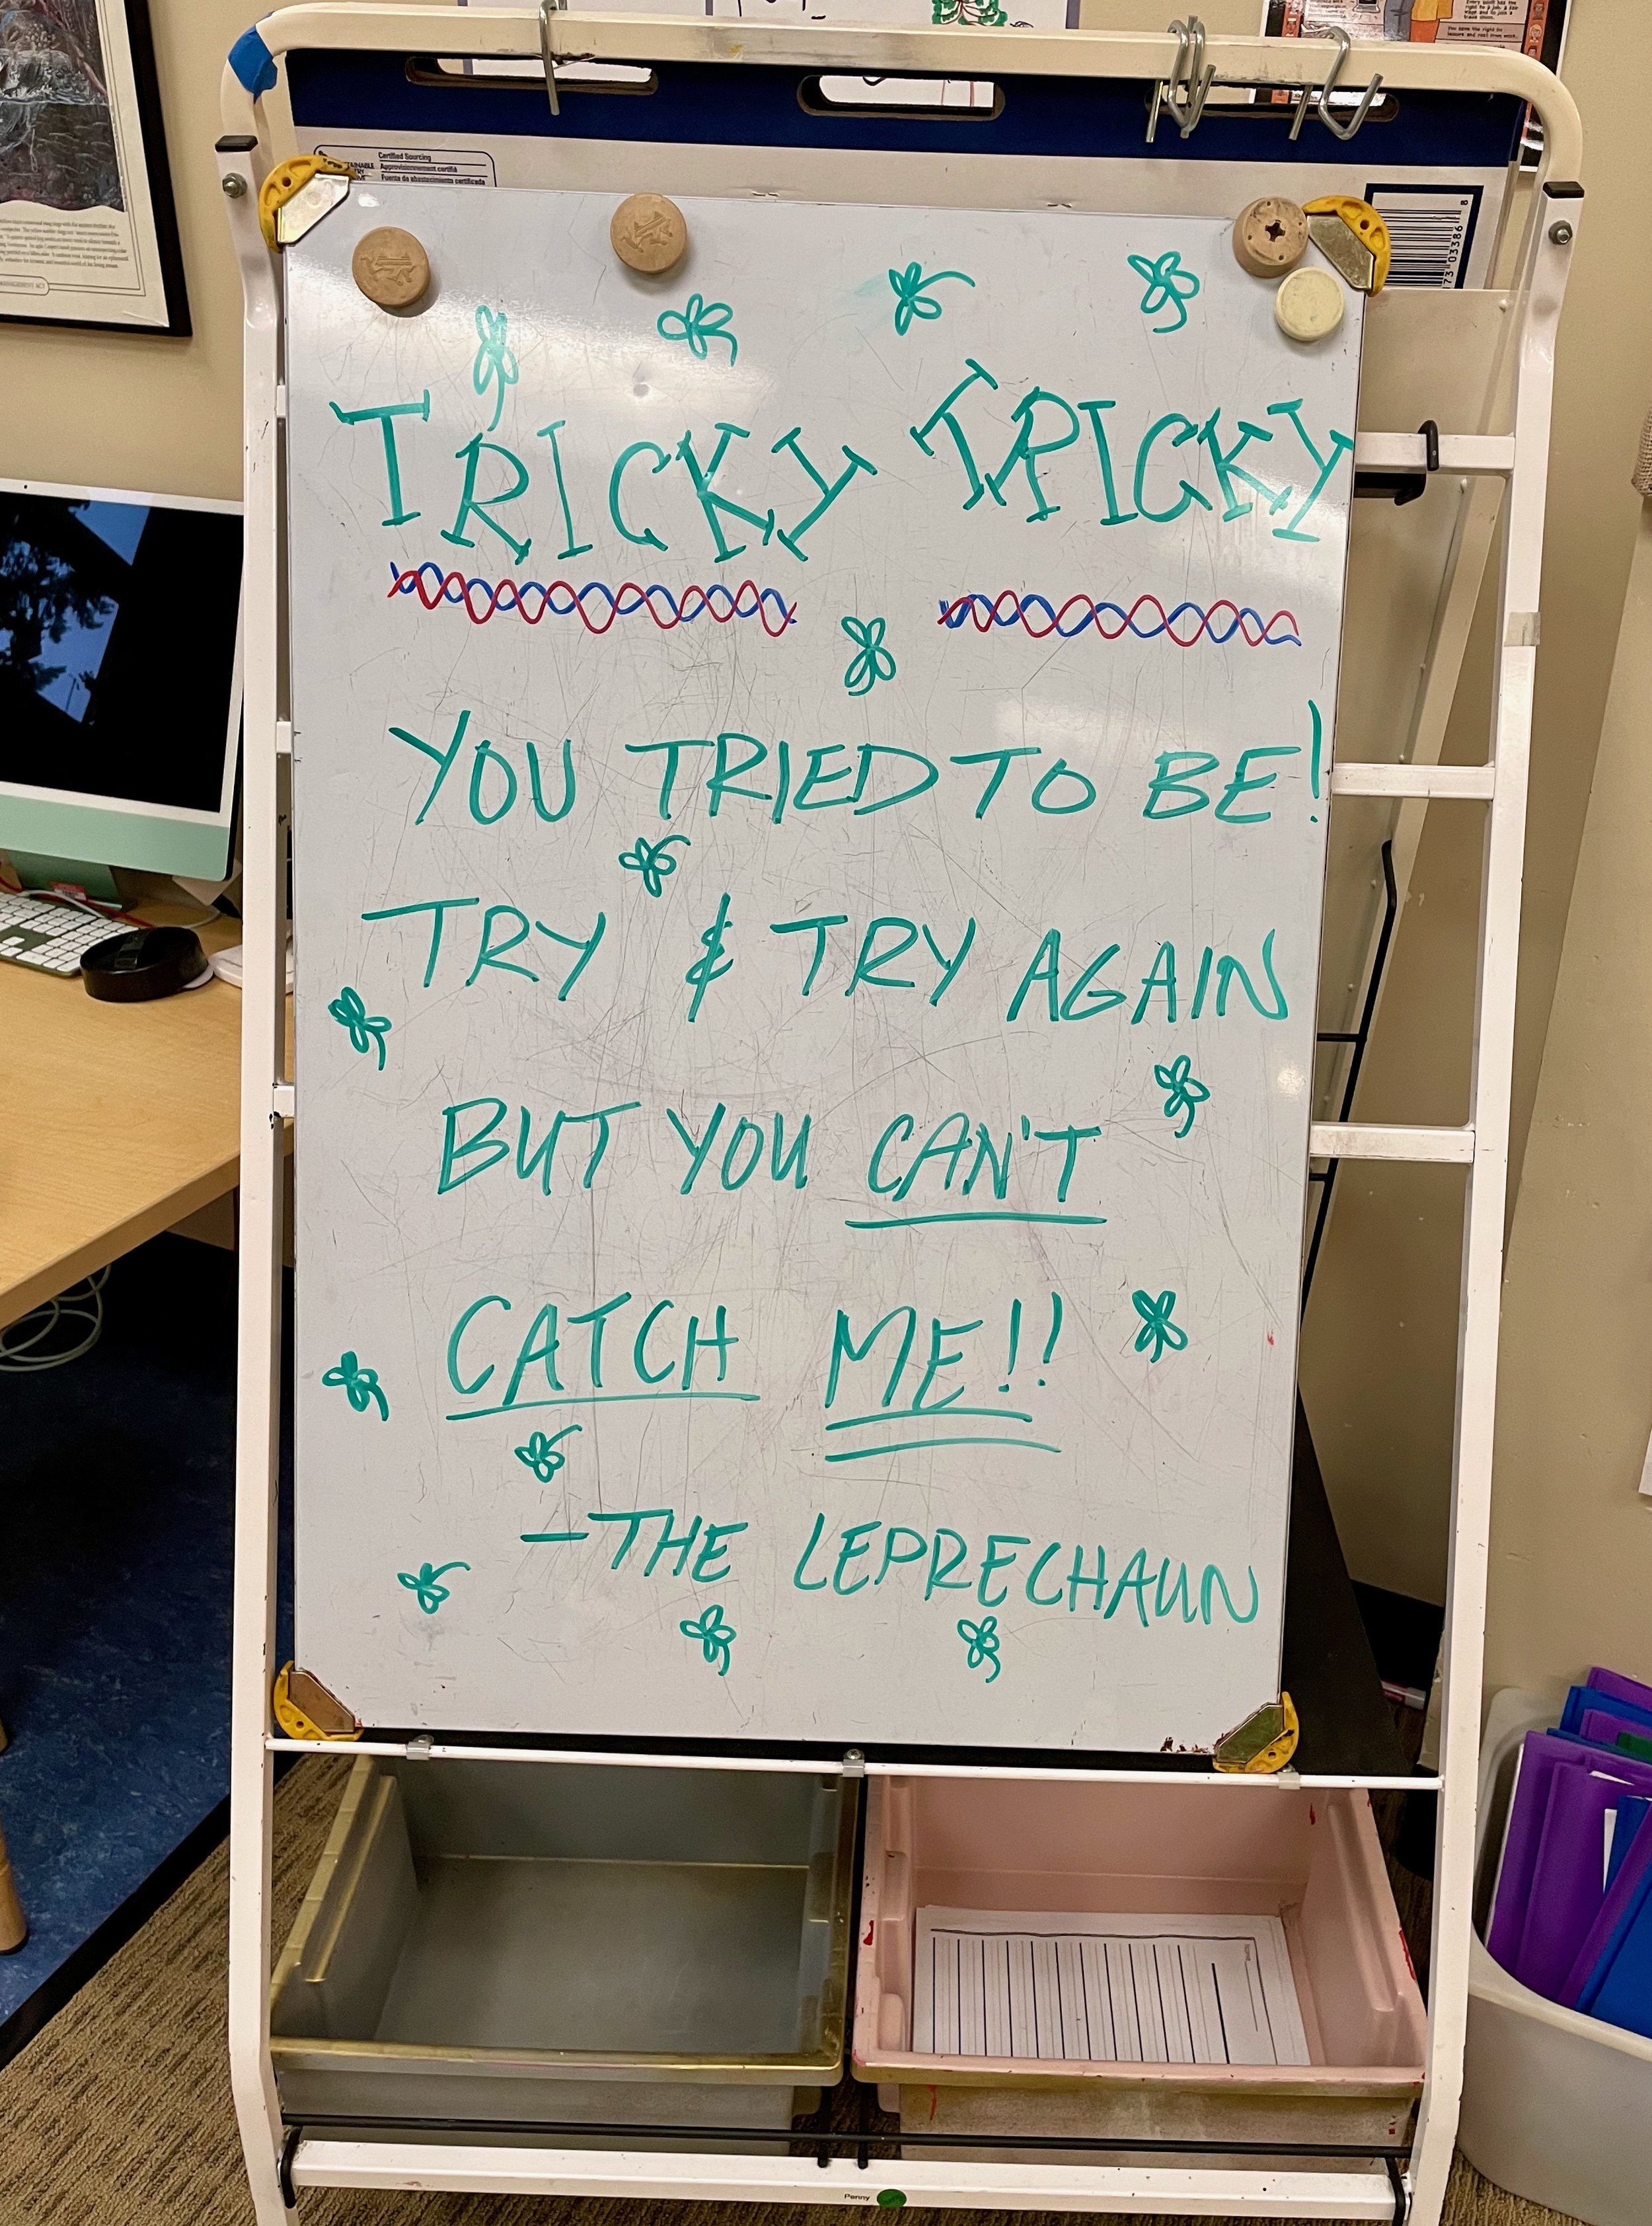 Certified Sourcing
Approvisionnement certifié
Fuente de abastecimiento certificada
TRICKY TRICKY
YOU TRIED TO BE!
TRY & TRY AGAIN
BUT YOU CAN'T
CATCH ME!!
-THE LEPRECHAUN
Penny